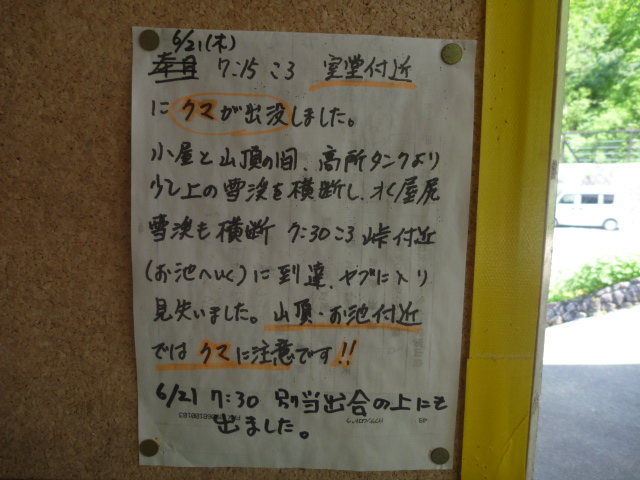 6/21(木)
7:15ころ 室堂付近
にクマが出没しました。
小屋と山頂の間、高所タンクより
少し上の雪渓を横断し、水屋尻
雪渓も横断 7:30ころ 峠付近
(お池へいく)に到達、ヤブに入り
見失いました。山頂・お池付近
ではクマに注意です!!
6/21 7:30 別当出合の上にも
出ました。